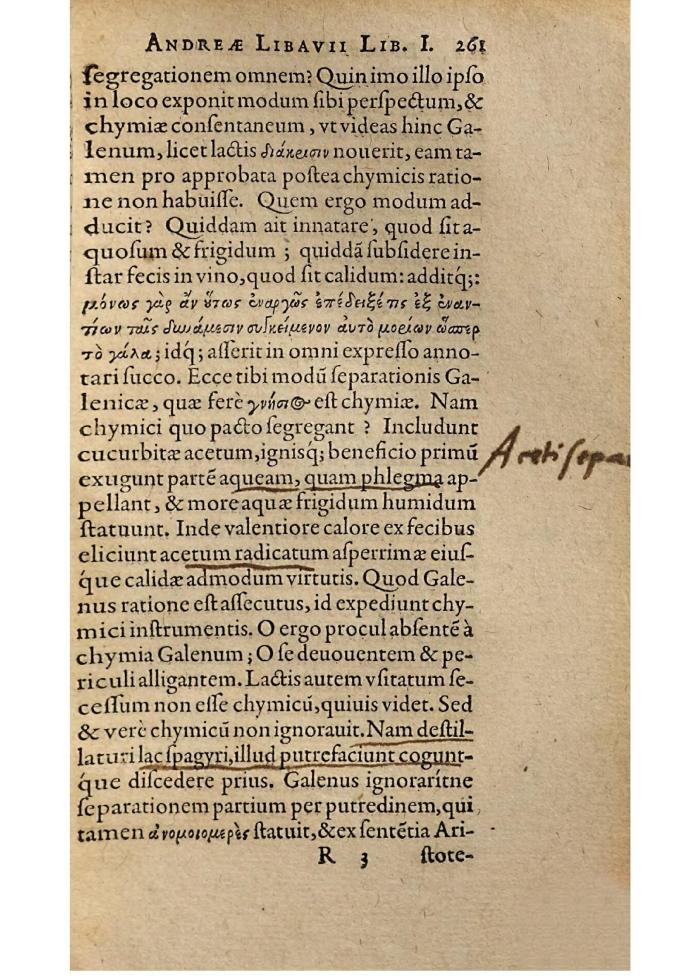 ANDREÆ LIBAVII LIB. I. 261
ſegregationem omnem? Quin imo illo ipſo
in loco exponit modum ſibi perſpectum, &
chymiæ conſentaneum, vt videas hinc Ga-
lenum, licet lactis διάκρισιν nouerit, eam ta-
men pro approbata poſtea chymicis ratio-
ne non habuiſſe. Quem ergo modum ad-
ducit? Quiddam ait innatare, quod ſit a-
quoſum & frigidum ; quiddã ſubſidere in-
ſtar fecis in vino, quod ſit calidum: additq́;:
μόνως γὰρ ἂν ὅτως ἐναργῶς ἐπέδειξέ τις ἐξ ἐναν-
τίων ταῖς δυνάμεσιν συγκείμενον αυτὸ μορίων ὥσπερ
τὸ γάλα; idq́; aſſerit in omni expreſſo anno-
tari ſucco. Ecce tibi modũ ſeparationis Ga-
lenicæ, quæ ferè γνήσιος eſt chymiæ. Nam
chymici quo pacto ſegregant ? Includunt
cucurbitæ acetum, ignisq́; beneficio primũ
exugunt partẽ aqueam, quam phlegma ap-
pellant, & more aquæ frigidum humidum
ſtatuunt. Inde valentiore calore ex fecibus
eliciunt acetum radicatum aſperrimæ eiuſ-
q́ue calidæ admodum virtutis. Quod Gale-
nus ratione eſt aſſecutus, id expediunt chy-
mici inſtrumentis. O ergo procul abſentẽ à
chymia Galenum ; O ſe deuouentem & pe-
riculi alligantem. Lactis autem vſitatum ſe-
ceſſum non eſſe chymicũ, quiuis videt. Sed
& verè chymicũ non ignorauit. Nam deſtil-
laturi lac ſpagyri, illud putrefaciunt cogunt-
q́ue diſcedere prius. Galenus ignorarítne
ſeparationem partium per putredinem, qui
tamen ἀνομοιομερὲς ſtatuit, & ex ſentẽtia Ari-
R 3 ſtote-
Aceti ſepa